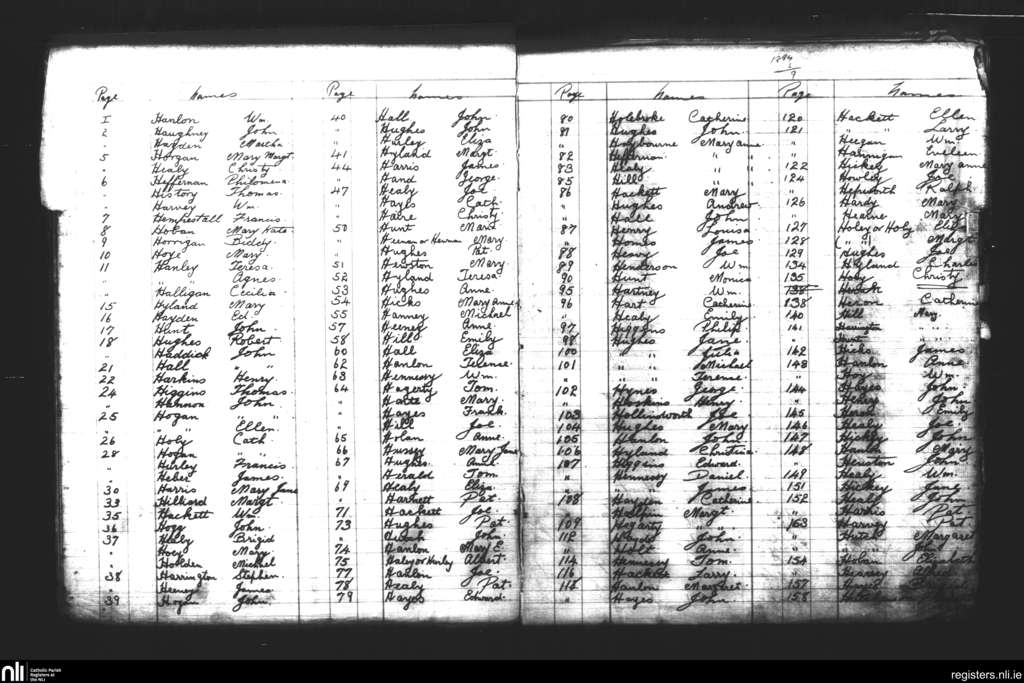 1894
1
9
Page Names
I Hanlon Wm.
2 Haughney John
" Hayden Martha
5 Horgan Mary Margt.
" Healy Christy
6 Heffernan Philomena
" History Thomas.
" Harvey Wm.
7 Hemphestall Francis.
8 Hoban Mary Kate
9 Horrigan Biddy
10 Hoye Mary
11 Hanley Teresa.
" " Agnes
" Halligan Cecilia
15 Hyland Mary
16 Hayden Ed.
17 Hunt John.
18 Hughes Robert
" Haddick John
21 Hall " "
22 Harkins Henry.
24 Higgins Thomas.
" Hannon John.
25 Hogan " "
" " Ellen.
26 Hoby Cath.
28 Hogan " "
" Hurley Francis.
" Heber James.
30 Harris Mary Jane
33 Hilliard Margt
35 Hackett Wm
36 Hogg John.
37 Healy Brigid
" Hoey Mary.
" Holden Michael
38 Harrington Stephen.
" Heeney James
39 Hogan John.
Page Names
40 Hall John.
" Hughes John
" Hurley Eliza
41 Hyland Margt
44 Harris James.
" Hand George.
47 Healy Joe
" Hayes Cath.
" Haire Christy
50 Hunt Mary
" Heenan or Hennan Mary.
" Hughes Pat
51 Heuston Mary.
52 Hyland Teresa
53 Hughes Anne.
54 Hicks Mary Anne
55 Hanney Michael
57 Heeney Anne.
58 Hill Emily
60 Hall Eliza
62 Hanlon Terence.
63 Hennessy Wm.
64 Hagerty Tom.
" Hatte Mary.
" Hayes Frank.
" Hill Joe.
65 Holan Anne.
66 Hussey Mary Jane
67 Hughes Anne.
" Herald Tom
69 Healy Eliza
" Harnett Pat
71 Hackett Joe.
73 Hughes Pat.
" John.
74 Hanlon Mary E.
75 Haley or Hurley Albert.
77 Hanlon Joe.
78 Healy Pat.
79 Hayes Edward.
Page Names
80 Holebroke Catherine
81 Hughes John.
" Holybourne Mary anne
82 Heffernon " "
83 Healy " "
85 Hill " "
86 Hackett Mary
" Hughes Andrew.
" Hall John
87 Henry Louisa
" Homes James
88 Heavy Joe
89 Henderson Wm
90 Hunt Monica
95 Hartney Wm.
96 Hart Catherine
" Healy Emily
97 Higgins Philip.
98 Hughes Jane.
100 " Julia
101 " Michael
" " Terence.
102 Hynes George.
" Hoskins Henry.
103 Hollinsworth Joe
104 Hughes Mary
105 Hanlon John
106 Hyland Christina
107 Higgins Edward.
" Hennessy Daniel
" " James
108 Hayden Catherine
" Halpin Margt.
109 Hogarty " "
112 John.
" Holt Anne.
114 Hennessy Tom.
116 Hackett Larry
118 Hanlon Margret.
" Hayes John
Page Names
120 Hackett Ellen
121 " " Larry
" Heegan Wm
" Hannigan Eileen
122 Hickey Mary anne
124 Howley Joe
" Hepworth Ralph
126 Hardy Mary
" Healne Mary
127 Holey or Holy Eliza
128 ( " " ) Margt
129 Hughes Joe
134 Hyland Charles
135 Hoby Christy
138 Heron Catherine
140 Hill Mary.
141 Harrington "
" Hunt "
142 Hicks James
143 Hanlon Annie
" Hoey Wm.
144 Hayes John.
" Henry John
145 Heron Emily
146 Healy Joe
147 Hickey John
148 Hanlon Mary
" Heuston John
149 Healy Wm.
151 Hickey Jane
152 Healy John
" Harris Pat
153 Harvey Pat.
" Hutch Margaret
154 Hoban Elizabeth
157 Hanlon
158
nli Catholic Parish Registers at the NLI
registers.nli.ie